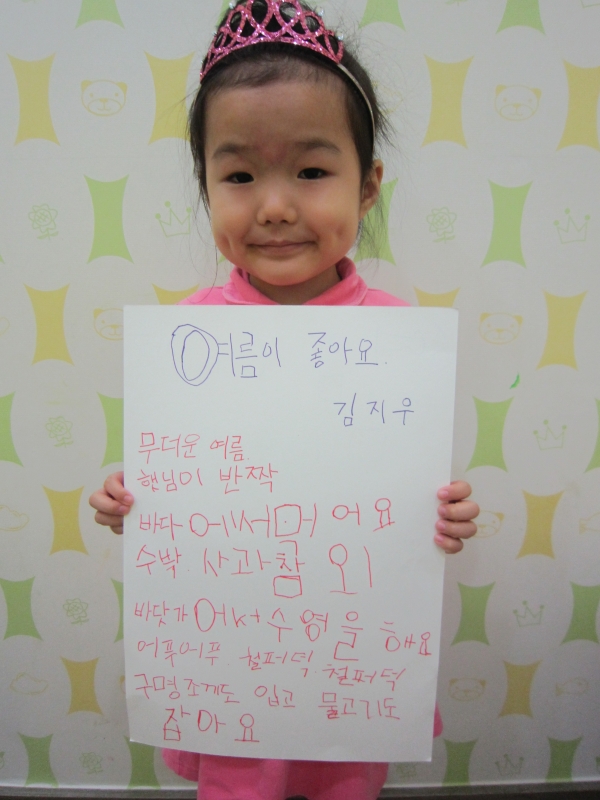 여름이 좋아요.
김지우
무더운 여름.
햇님이 반짝
바다에서 머어요
수박. 사과참외
바닷가에서 수영을 해요
어푸어푸. 철퍼덕. 철퍼덕
구명조께도 입고 물고기도
잡아요